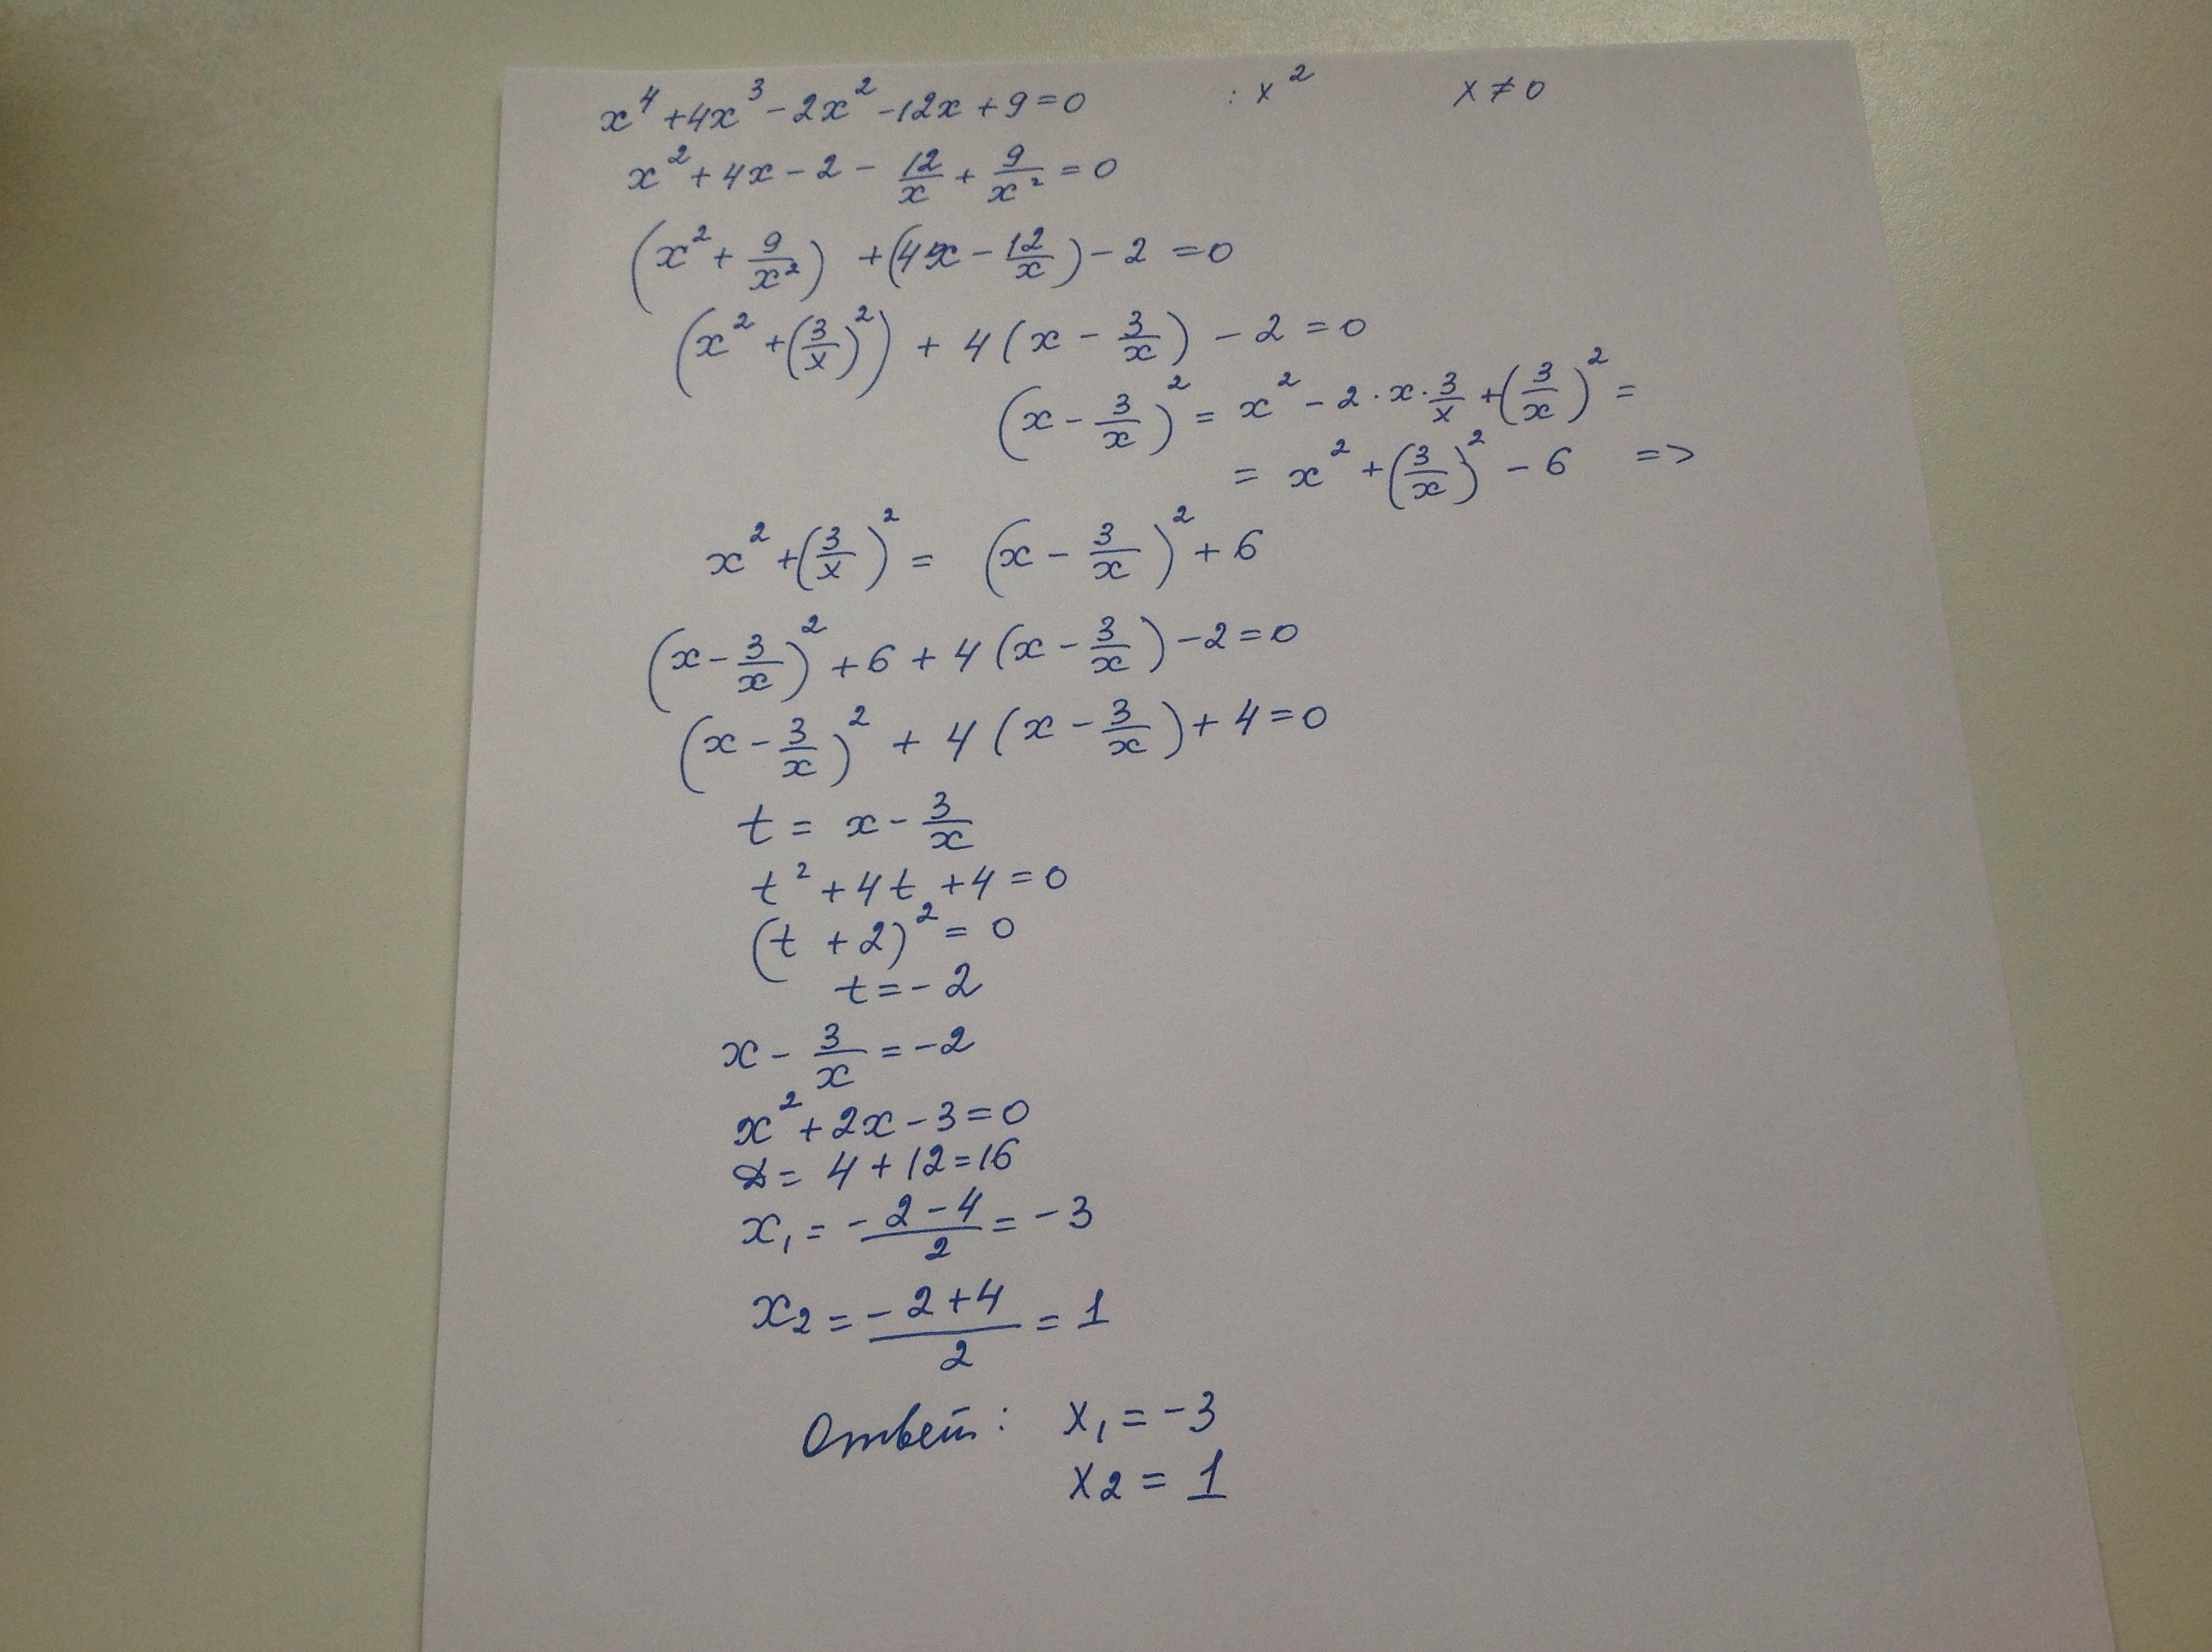 x⁴ + 4x³ - 2x² - 12x + 9 = 0 : x² x ≠ 0
x² + 4x - 2 - 12/x + 9/x² = 0
(x² + 9/x²) + (4x - 12/x) - 2 = 0
(x² + (3/x)²) + 4(x - 3/x) - 2 = 0
(x - 3/x)² = x² - 2 · x · 3/x + (3/x)² =
= x² + (3/x)² - 6 =>
x² + (3/x)² = (x - 3/x)² + 6
(x - 3/x)² + 6 + 4(x - 3/x) - 2 = 0
(x - 3/x)² + 4(x - 3/x) + 4 = 0
t = x - 3/x
t² + 4t + 4 = 0
(t + 2)² = 0
t = -2
x - 3/x = -2
x² + 2x - 3 = 0
D = 4 + 12 = 16
x₁ = (-2-4)/2 = -3
x₂ = (-2+4)/2 = 1
Ответ: x₁ = -3
x₂ = 1